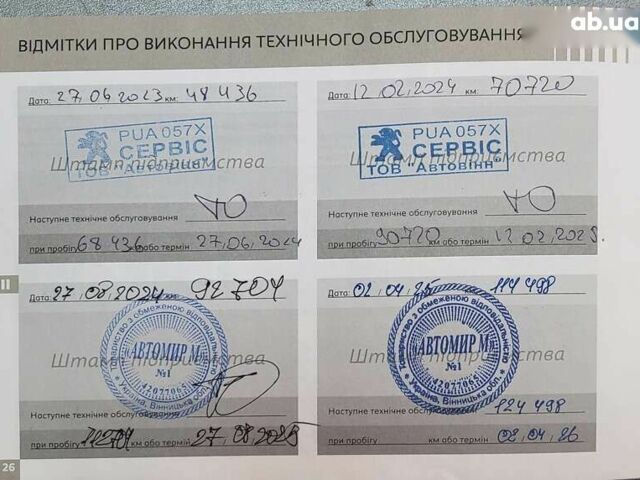 ab.ua
ВІДМІТКИ ПРО ВИКОНАННЯ ТЕХНІЧНОГО ОБСЛУГОВУВАННЯ
Дата: 27,06,2023 км: 48 436
PUA 057X
СЕРВІС
ТОВ "Автовінн"
Штамп підприємства
Наступне технічне обслуговування
при пробігу 68 436 км або термін 27,06,2024
Дата: 12,02,2024 км: 70720
PUA 057X
СЕРВІС
ТОВ "Автовінн"
Штамп підприємства
Наступне технічне обслуговування
при пробігу 90720 км або термін 12 02,2025.
Дата: 27,08,2024 92704
Товариство з обмеженою відповідальністю
"АВТОМИР М"
№1
Україна, Вінницька обл.
Штамп підприємства
Наступне технічне обслуговування
при пробігу км або термін 27,08,2025
Дата: 02,04,25 114 498
Товариство з обмеженою відповідальністю
"АВТОМИР М"
№1
Україна, Вінницька обл.
Штамп підприємства
Наступне технічне обслуговування 124 498
при пробігу км або термін 02,04,26
26